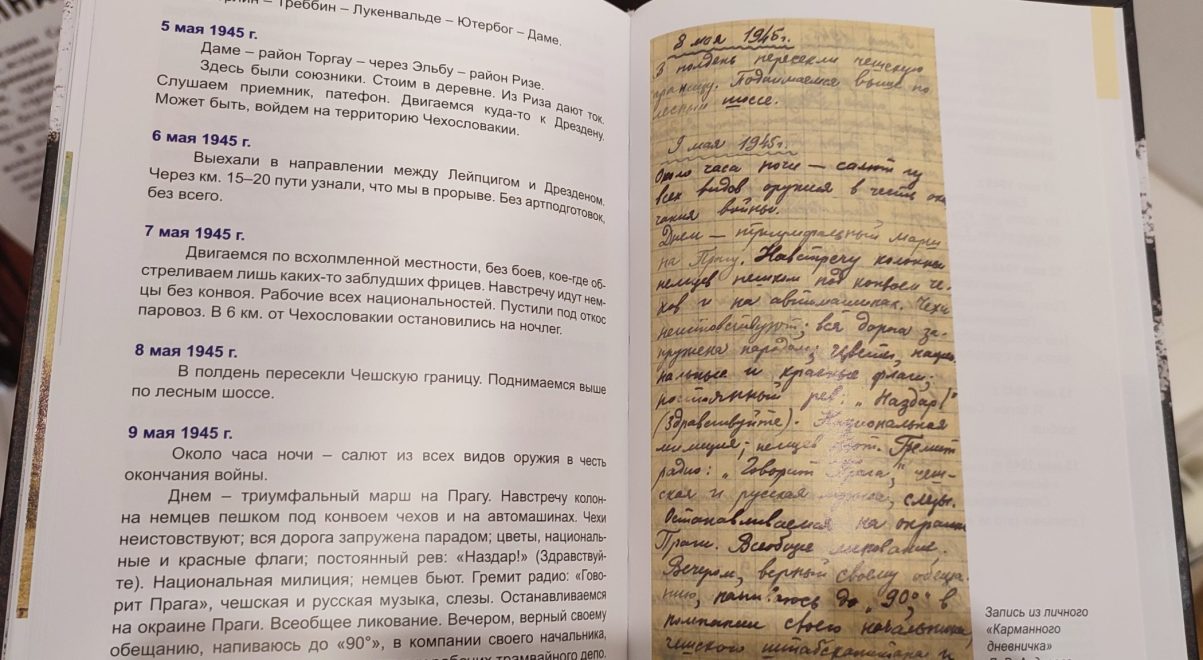 Треббин – Лукенвальде – Ютербог – Даме.
5 мая 1945 г.
Даме – район Торгау – через Эльбу – район Ризе.
Здесь были союзники. Стоим в деревне. Из Риза дают ток.
Слушаем приемник, патефон. Двигаемся куда-то к Дрездену.
Может быть, войдем на территорию Чехословакии.
6 мая 1945 г.
Выехали в направлении между Лейпцигом и Дрезденом.
Через км. 15–20 пути узнали, что мы в прорыве. Без артподготовок,
без всего.
7 мая 1945 г.
Двигаемся по всхолмленной местности, без боев, кое-где об-
стреливаем лишь каких-то заблудших фрицев. Навстречу идут нем-
цы без конвоя. Рабочие всех национальностей. Пустили под откос
паровоз. В 6 км. от Чехословакии остановились на ночлег.
8 мая 1945 г.
В полдень пересекли Чешскую границу. Поднимаемся выше
по лесным шоссе.
9 мая 1945 г.
Около часа ночи – салют из всех видов оружия в честь
окончания войны.
Днем – триумфальный марш на Прагу. Навстречу колон-
на немцев пешком под конвоем чехов и на автомашинах. Чехи
неистовствуют; вся дорога запружена парадом; цветы, националь-
ные и красные флаги; постоянный рев: «Наздар!» (Здравствуй-
те). Национальная милиция; немцев бьют. Гремит радио: «Гово-
рит Прага», чешская и русская музыка, слезы. Останавливаемся
на окраине Праги. Всеобщее ликование. Вечером, верный своему
обещанию, напиваюсь до «90°», в компании своего начальника,
трамвайного депо,
8 мая 1945г.
В полдень пересекли чешскую
границу. Поднимаемся выше по
лесным шоссе.
9 мая 1945г.
Около часа ночи – салют из
всех видов оружия в честь окон
чания войны.
Днем – триумфальный марш
на Прагу. Навстречу колонны
немцев пешком под конвоем че-
хов и на автомашинах. Чехи
неистовствуют; вся дорога за-
пружена народом; цветы, нацио
нальные и красные флаги;
постоянный рев: „Наздар!"
(Здравствуйте). Национальная
милиция; немцев бьют. Гремит
радио: „Говорит Прага", чеш-
ская и русская музыка, слезы.
Останавливаемся на окраине
Праги. Всеобщее ликование.
Вечером, верный своему обеща-
нию, напиваюсь до „90°", в
компании своего начальника,
чешского штабскапитана и
Запись из личного
«Карманного
дневничка»